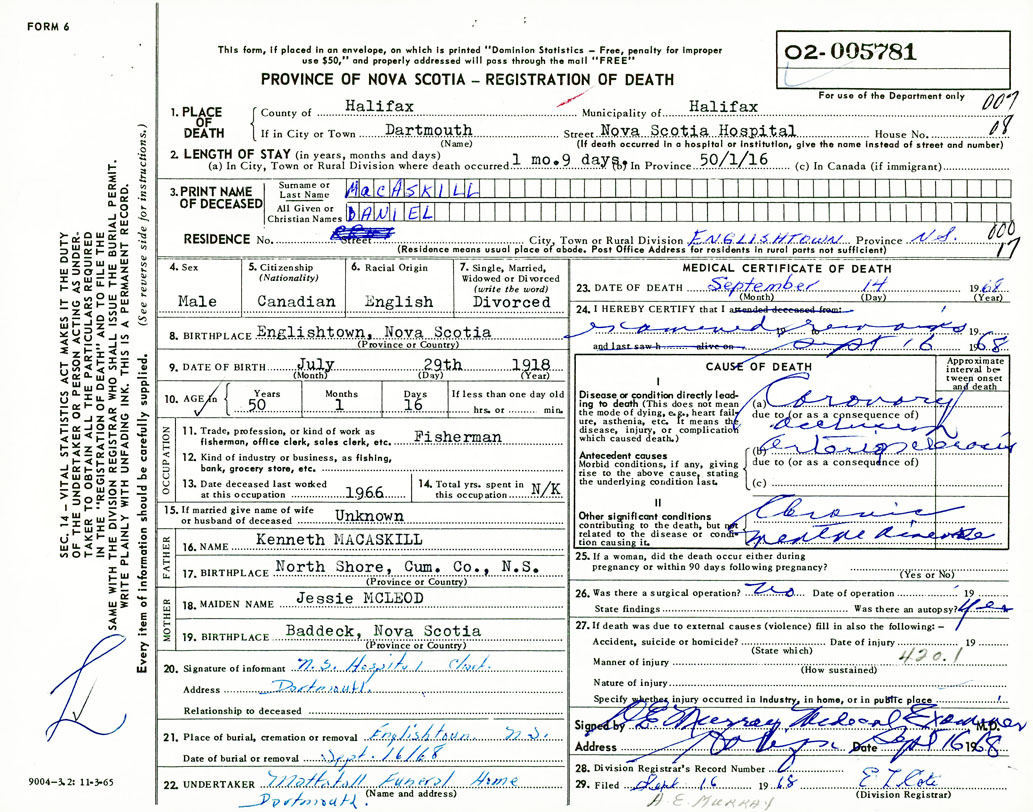 FORM 6
This form, if placed in an envelope, on which is printed "Dominion Statistics – Free, penalty for improper
use $50," and properly addressed will pass through the mail "FREE"
02-005781
PROVINCE OF NOVA SCOTIA – REGISTRATION OF DEATH
For use of the Department only
007
08
1. PLACE OF DEATH
County of Halifax Municipality of Halifax
If in City or Town Dartmouth Street Nova Scotia Hospital House No.
(Name) (If death occurred in a hospital or institution, give the name instead of street and number)
2. LENGTH OF STAY (in years, months and days)
(a) In City, Town or Rural Division where death occurred 1 mo.9 days. (b) In Province 50/1/16 (c) In Canada (if immigrant)
3. PRINT NAME OF DECEASED
Surname or Last Name MacASKILL
All Given or Christian Names DANIEL
RESIDENCE No. Street City, Town or Rural Division ENGLISHTOWN Province N.S.
000
17
(Residence means usual place of abode. Post Office Address for residents in rural parts not sufficient)
4. Sex Male
5. Citizenship (Nationality) Canadian
6. Racial Origin English
7. Single, Married, Widowed or Divorced (write the word) Divorced
8. BIRTHPLACE Englishtown, Nova Scotia
(Province or Country)
9. DATE OF BIRTH July 29th 1918
(Month) (Day) (Year)
10. AGE in Years 50 Months 1 Days 16 If less than one day old hrs. or min.
OCCUPATION
11. Trade, profession, or kind of work as fisherman, office clerk, sales clerk, etc. Fisherman
12. Kind of industry or business, as fishing, bank, grocery store, etc.
13. Date deceased last worked at this occupation 1966
14. Total yrs. spent in this occupation N/K
15. If married give name of wife or husband of deceased Unknown
FATHER
16. NAME Kenneth MACASKILL
17. BIRTHPLACE North Shore, Cum. Co., N.S.
(Province or Country)
MOTHER
18. MAIDEN NAME Jessie MCLEOD
19. BIRTHPLACE Baddeck, Nova Scotia
(Province or Country)
20. Signature of informant N.S. Hospital
Address Dartmouth.
Relationship to deceased
21. Place of burial, cremation or removal Englishtown N.S.
Date of burial or removal Sept. 16/68
22. UNDERTAKER Mattatall Funeral Home
(Name and address)
Dartmouth.
MEDICAL CERTIFICATE OF DEATH
23. DATE OF DEATH September 14 1968
(Month) (Day) (Year)
24. I HEREBY CERTIFY that I attended deceased from:
examined remains 19
and last saw h alive on Sept 16 1968
CAUSE OF DEATH
Approximate interval between onset and death
I
Disease or condition directly leading to death (This does not mean the mode of dying, e.g., heart failure, asthenia, etc. It means the disease, injury, or complication which caused death.)
(a) Coronary
due to (or as a consequence of)
occlusion
Antecedent causes
Morbid conditions, if any, giving rise to the above cause, stating the underlying condition last.
(b) arteriosclerosis
due to (or as a consequence of)
(c)
II
Other significant conditions contributing to the death, but not related to the disease or condition causing it.
Chronic
mental disease
25. If a woman, did the death occur either during pregnancy or within 90 days following pregnancy?
(Yes or No)
26. Was there a surgical operation? No Date of operation 19
State findings Was there an autopsy? Yes
27. If death was due to external causes (violence) fill in also the following: –
Accident, suicide or homicide? Date of injury 19
(State which)
420.1
Manner of injury
(How sustained)
Nature of injury
Specify whether injury occurred in industry, in home, or in public place
Signed by Murray Medical Examiner M.D.
Address Date Sept 16 1968
28. Division Registrar's Record Number
29. Filed Sept 16 1968
(Division Registrar)
A E MURRAY
SEC. 14 – VITAL STATISTICS ACT MAKES IT THE DUTY
OF THE UNDERTAKER OR PERSON ACTING AS UNDER-
TAKER TO OBTAIN ALL THE PARTICULARS REQUIRED
IN THE "REGISTRATION OF DEATH" AND TO FILE THE
SAME WITH THE DIVISION REGISTRAR WHO SHALL ISSUE THE BURIAL PERMIT.
WRITE PLAINLY WITH UNFADING INK. THIS IS A PERMANENT RECORD.
Every item of information should be carefully supplied. (See reverse side for instructions.)
9004–3.2: 11-3-65